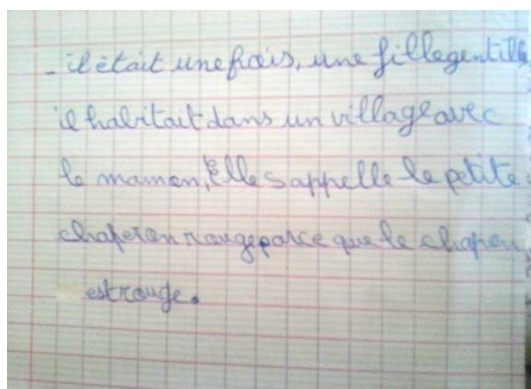 - il était une frois, une fille gentille
il habitait dans un village avec
le maman, Elle s appelle le petite
chaperon rouge parce que le chapron
est rouge.